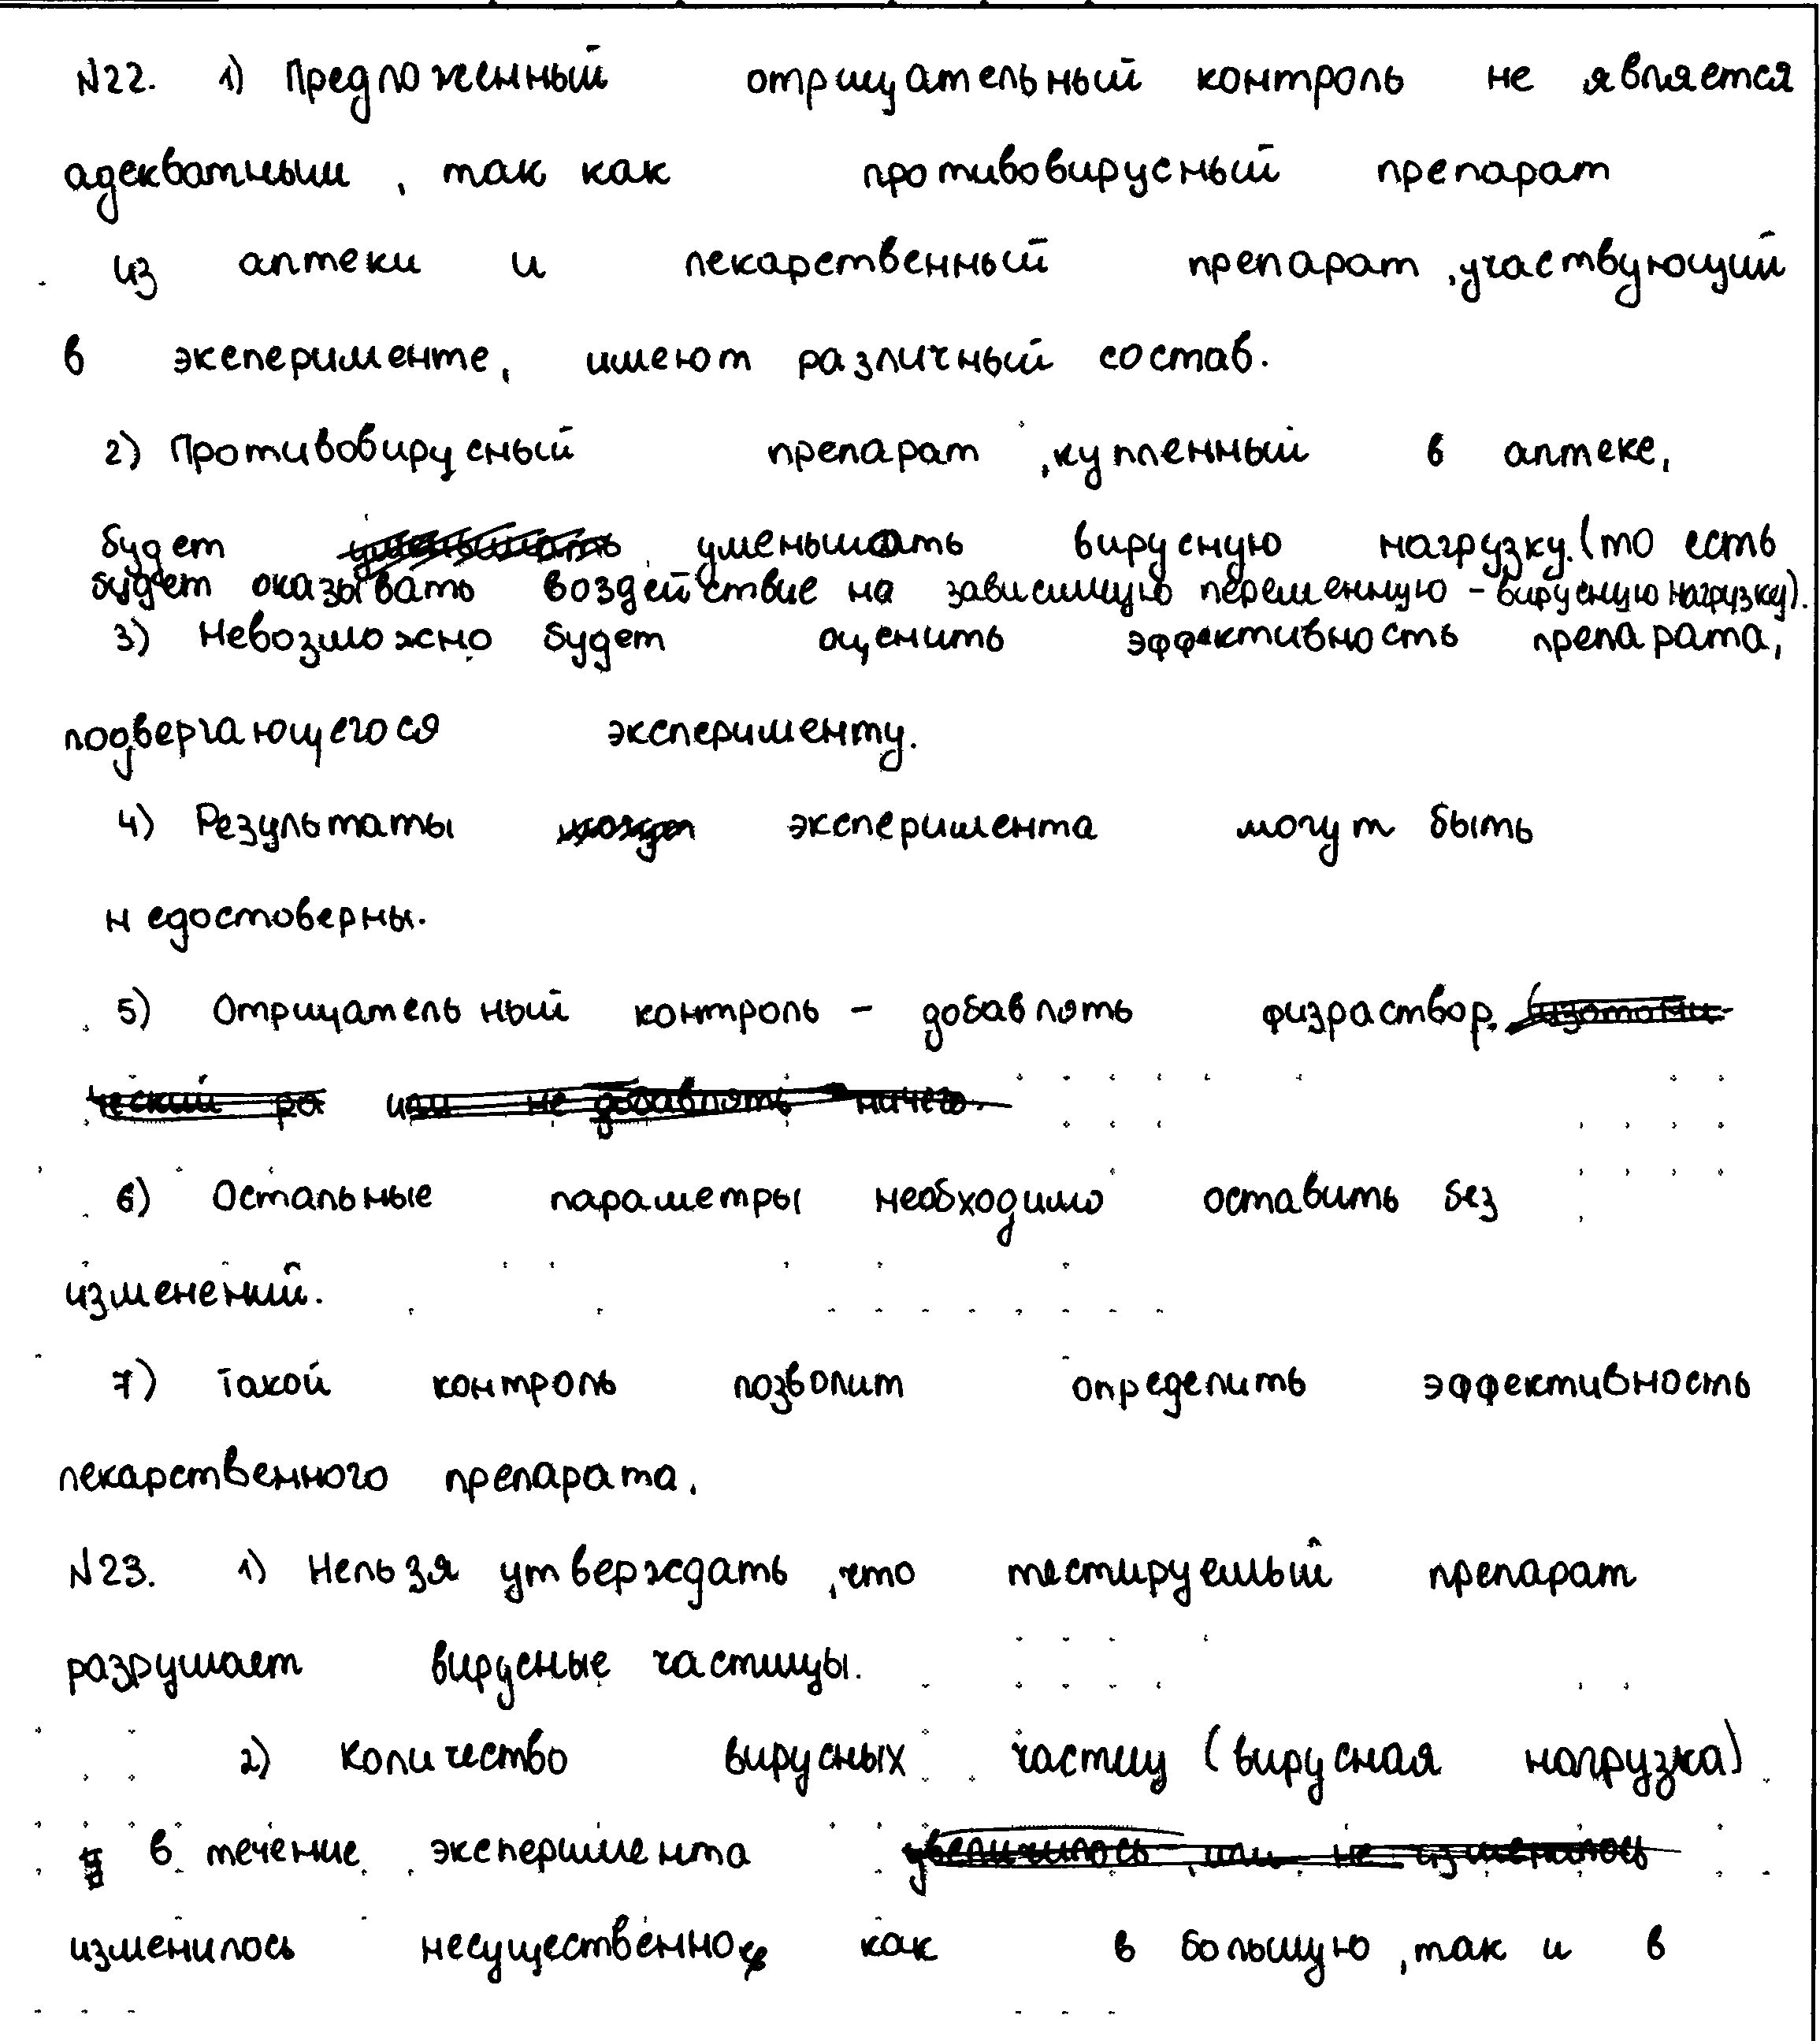 N22. 1) Предложенный отрицательный контроль не является
адекватным, так как противовирусный препарат
из аптеки и лекарственный препарат, участвующий
в эксперименте, имеют различный состав.
2) Противовирусный препарат, купленный в аптеке,
будет уменьшать вирусную нагрузку. (то есть
будет оказывать воздействие на зависимую переменную - вирусную нагрузку).
3) Невозможно будет оценить эффективность препарата,
подвергающегося эксперименту.
4) Результаты эксперимента могут быть
недостоверны.
5) Отрицательный контроль - добавлять физраствор. (изотони-
ческий ра или не добавлять ничего.
6) Остальные параметры необходимо оставить без
изменений.
7) Такой контроль позволит определить эффективность
лекарственного препарата.
N23. 1) Нельзя утверждать, что тестируемый препарат
разрушает вирусные частицы.
2) Количество вирусных частиц (вирусная нагрузка)
в течение эксперимента увеличилось, или не изменилось
изменилось несущественно как в большую, так и в